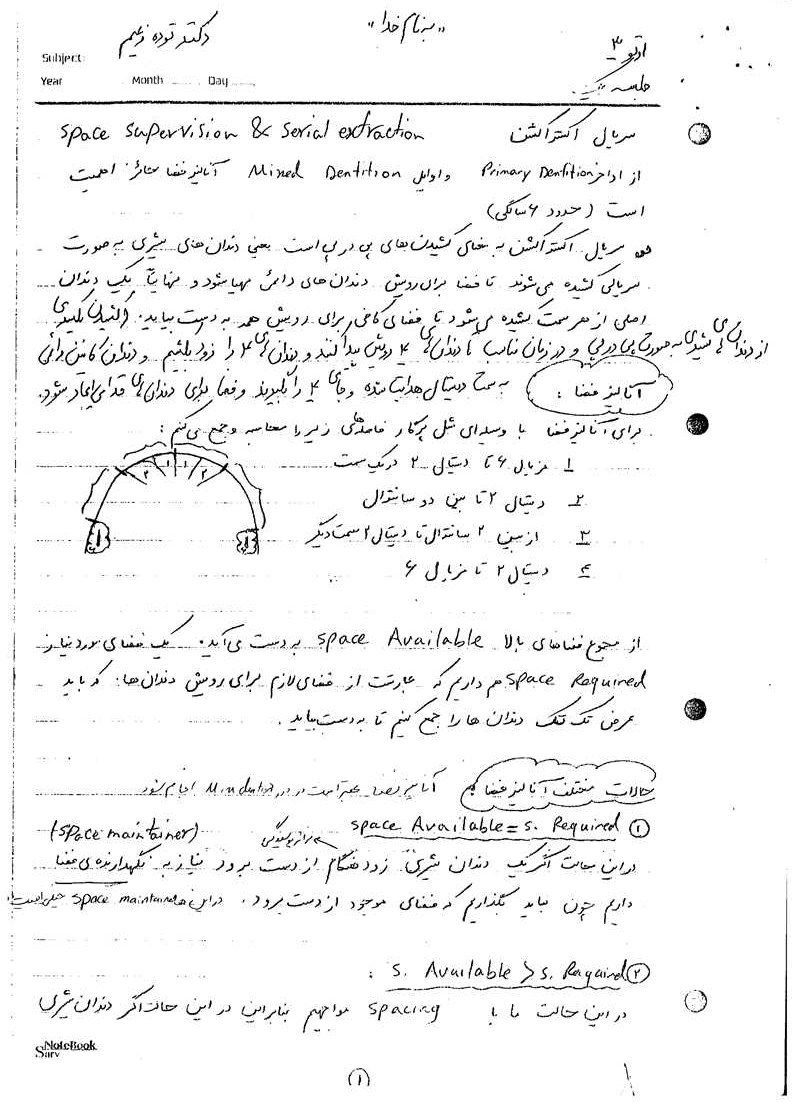 "بنام خدا"
دکتر توده زعیم
ارتو ۳
Subject:
Year Month Day
جلسه یک
سریال اکسترکشن space supervision & serial extraction
از اواخر Primary Dentition و اوایل Mixed Dentition آنالیز فضا حائز اهمیت
است (حدود ۶ سالگی)
سریال اکسترکشن به معنای کشیدن های پی در پی است یعنی دندان های شیری به صورت
سریالی کشیده می شوند تا فضا برای رویش دندان های دائمی مهیا شود و نهایتاً یک دندان
اصلی از هر سمت کشیده می شود تا فضای کافی برای رویش همه به دست بیاید.
از دندان های شیری به صورت پی در پی و در زمان مناسب تا دندان های ۴ رویش پیدا کنند و دندان های ۴ را زود بکشیم و دندان کانین دائمی
به سمت دیستال هدایت شده و جای ۴ را بگیرند و فضا برای دندان های قدامی ایجاد شود.
آنالیز فضا :
برای آنالیز فضا با وسیله ای مثل پرگار فاصله های زیر را محاسبه و جمع می کنیم :
۱ مزیال ۶ تا دیستال ۲ در یک سمت
۲ دیستال ۲ تا بین دو سانترال
۳ از بین ۲ سانترال تا دیستال ۲ سمت دیگر
۴ دیستال ۲ تا مزیال ۶
۲ ۱ ۱ ۲
از مجموع فضاهای بالا space Available به دست می آید. یک فضای مورد نیاز
space Required هم داریم که عبارتست از فضای لازم برای رویش دندان ها که باید
عرض تک تک دندان ها را جمع کنیم تا به دست بیاید.
حالات مختلف آنالیز فضا آنالیز فضا در انجام شود
① space Available = s. Required (space maintainer)
در این حالت اگر یک دندان شیری زودهنگام از دست برود نیاز به نگهدارنده ی فضا
داریم چون نباید بگذاریم که فضای موجود از دست برود. در این space maintainer خیلی
② s. Available > s. Required :
در این حالت ما با spacing مواجهیم بنابراین در این حالت اگر دندان شیری
NoteBook
Sarv
①